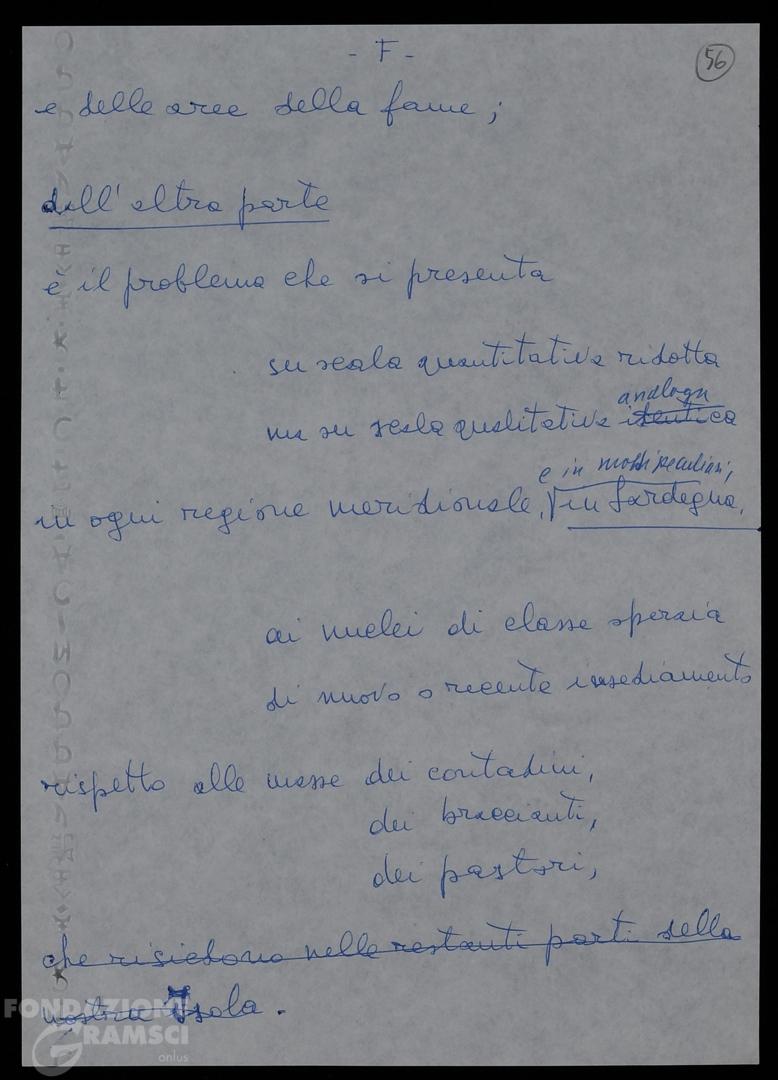 - F -
56
e delle aree della fame;
dall'altra parte
è il problema che si presenta
su scala quantitativa ridotta
analoga
ma su scala qualitativa identica
e in modi peculiari,
in ogni regione meridionale, in Sardegna,
ai nuclei di classe operaia
di nuovo o recente insediamento
rispetto alle masse dei contadini,
dei braccianti,
dei pastori,
che risiedono nelle restanti parti della
nostra Isola.
FONDAZIONE
GRAMSCI
onlus